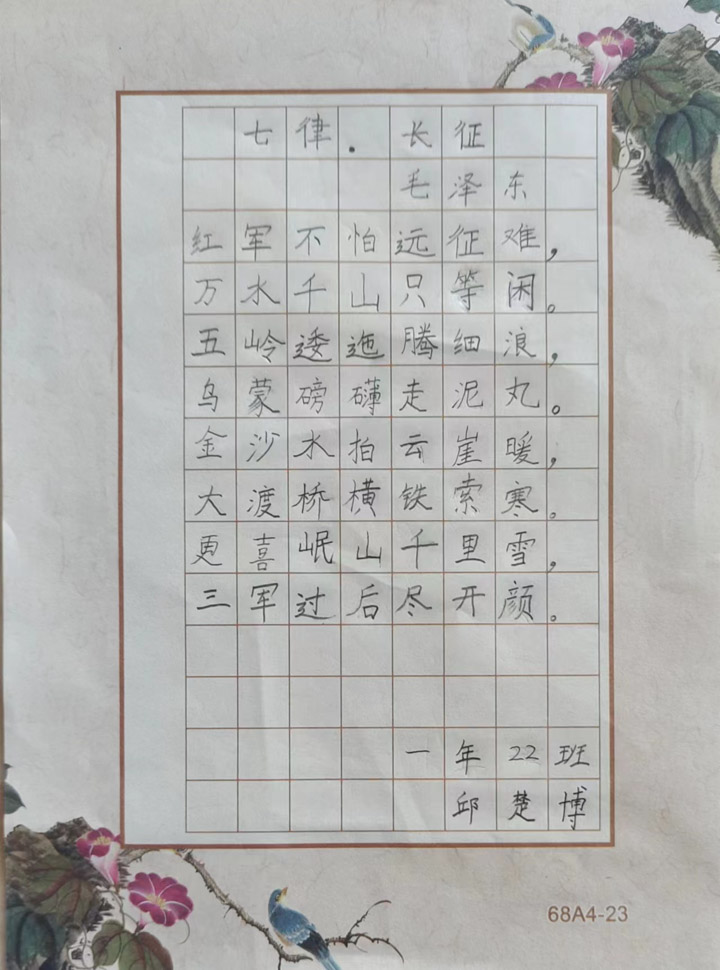 七律.长征
毛泽东
红军不怕远征难，
万水千山只等闲。
五岭逶迤腾细浪，
乌蒙磅礴走泥丸。
金沙水拍云崖暖，
大渡桥横铁索寒。
更喜岷山千里雪，
三军过后尽开颜。
一年22班
邱楚博
68A4-23